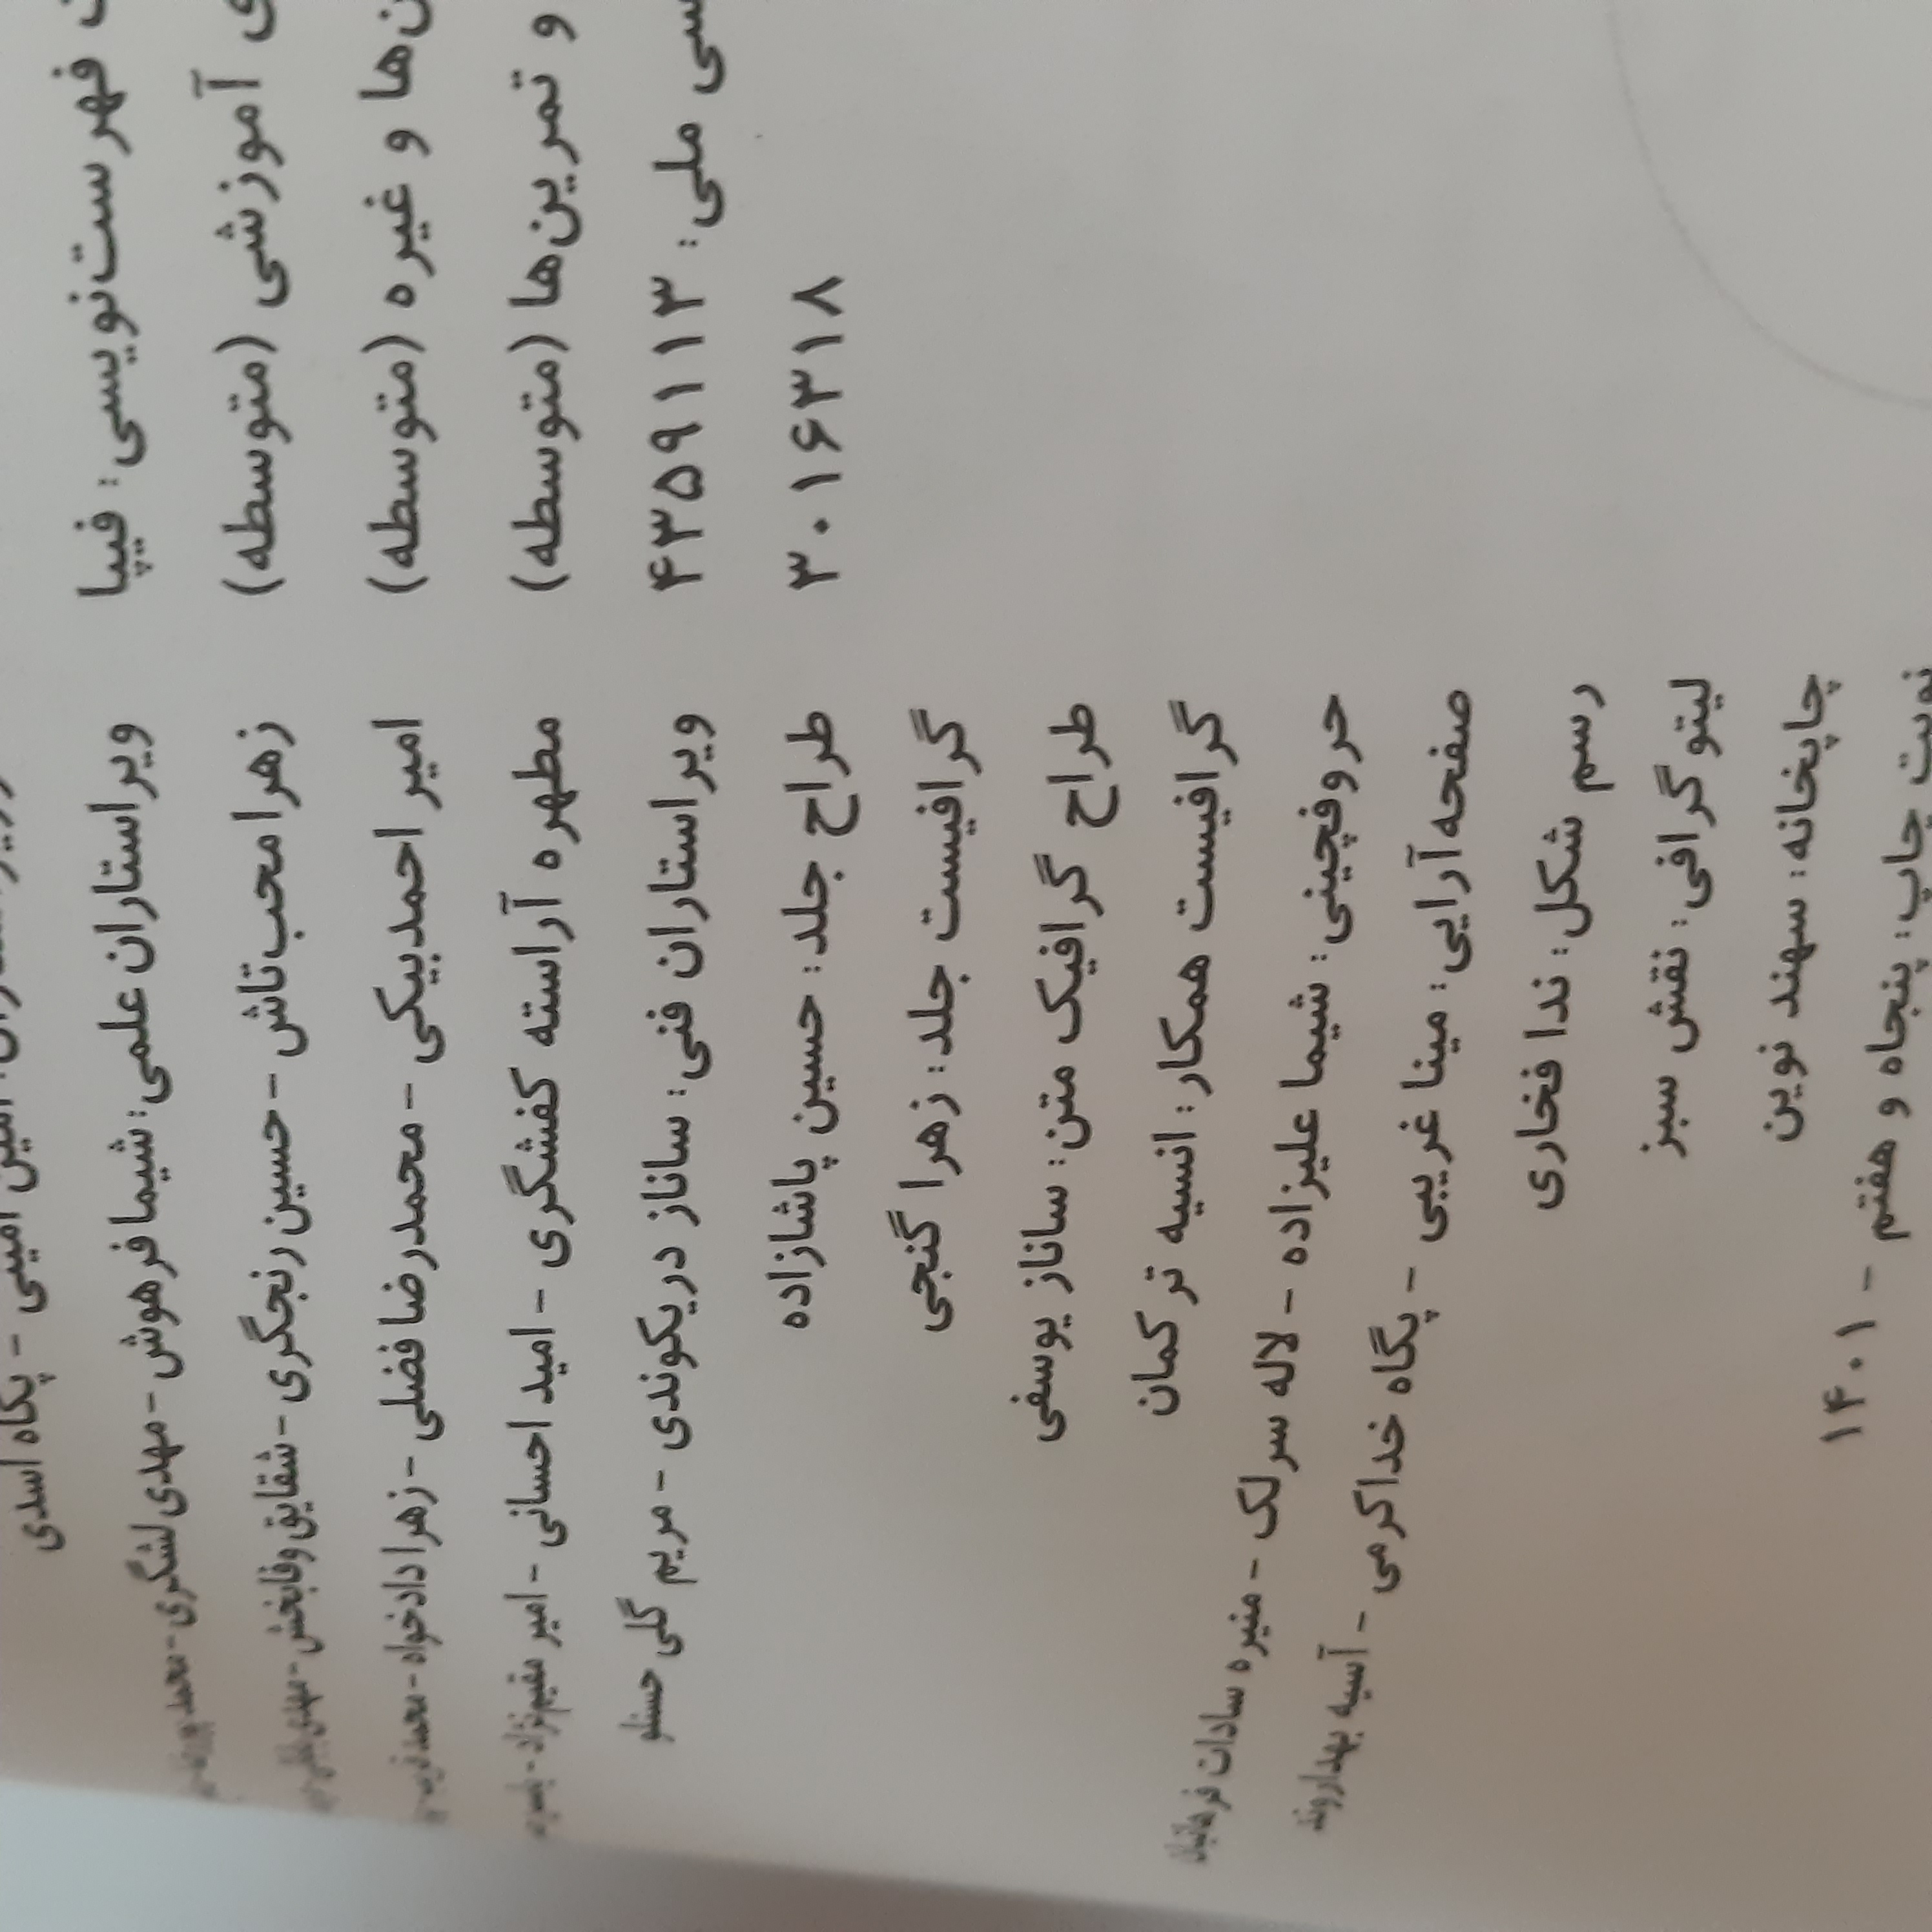 فهرست‌نویسی: فیپا
آموزشی (متوسطه)
ن‌ها و غیره (متوسطه)
و تمرین‌ها (متوسطه)
ملی: ۴۳۵۹۱۱۳
۳۰۱۶۳۱۸
امینی - پگاه اسدی
ویراستاران علمی: شیما فرهوش - مهدی لشگری - محمد
زهرا محب‌تاش - حسین رنجگری - شقایق وفابخش - مهدی
امیر احمدبیکی - محمدرضا فضلی - زهرا دادخواه - محمد
مطهره آراسته کفشگری - امید احسانی - امیر مقیم‌نژاد -
ویراستاران فنی: ساناز دریکوندی - مریم گلی حسنلو
طراح جلد: حسین پاشازاده
گرافیست جلد: زهرا گنجی
طراح گرافیک متن: ساناز یوسفی
گرافیست همکار: انسیه ترکمان
حروفچینی: شیما علیزاده - لاله سرلک - منیره سادات فرهانیان
صفحه‌آرایی: مینا غریبی - پگاه خداکرمی - آسیه بهداروند
رسم شکل: ندا فخاری
لیتوگرافی: نقش سبز
چاپخانه: سهند نوین
نوبت چاپ: پنجاه و هفتم - ۱۴۰۱